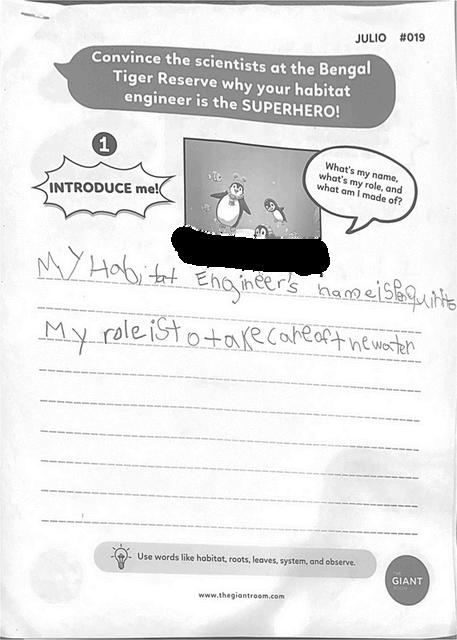 JULIO #019
Convince the scientists at the Bengal
Tiger Reserve why your habitat
engineer is the SUPERHERO!
1
INTRODUCE me!
What's my name,
what's my role, and
what am I made of?
My Habitat Engineer's name is
My role is to take care of the water
Use words like habitat, roots, leaves, system, and observe.
www.thegiantroom.com
THE
GIANT
ROOM